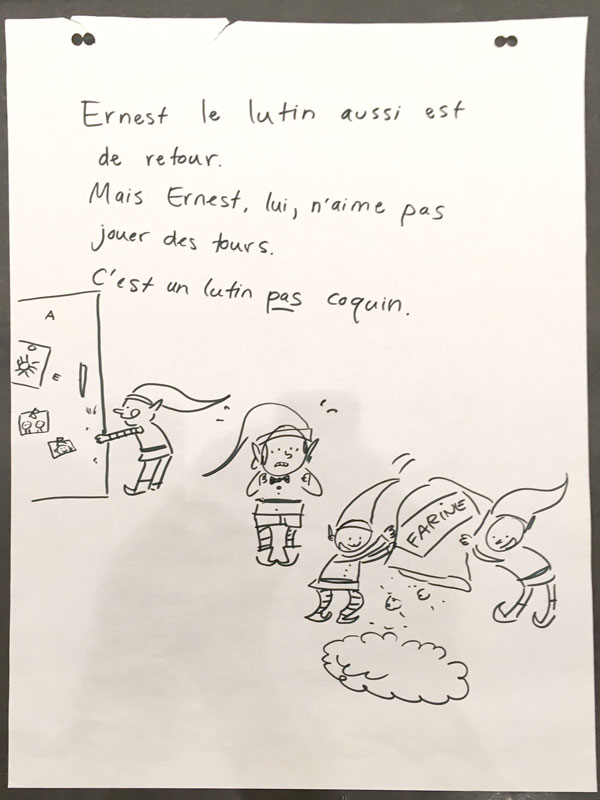 Ernest le lutin aussi est
de retour.
Mais Ernest, lui, n'aime pas
jouer des tours.
C'est un lutin pas coquin.
A
E
FARINE